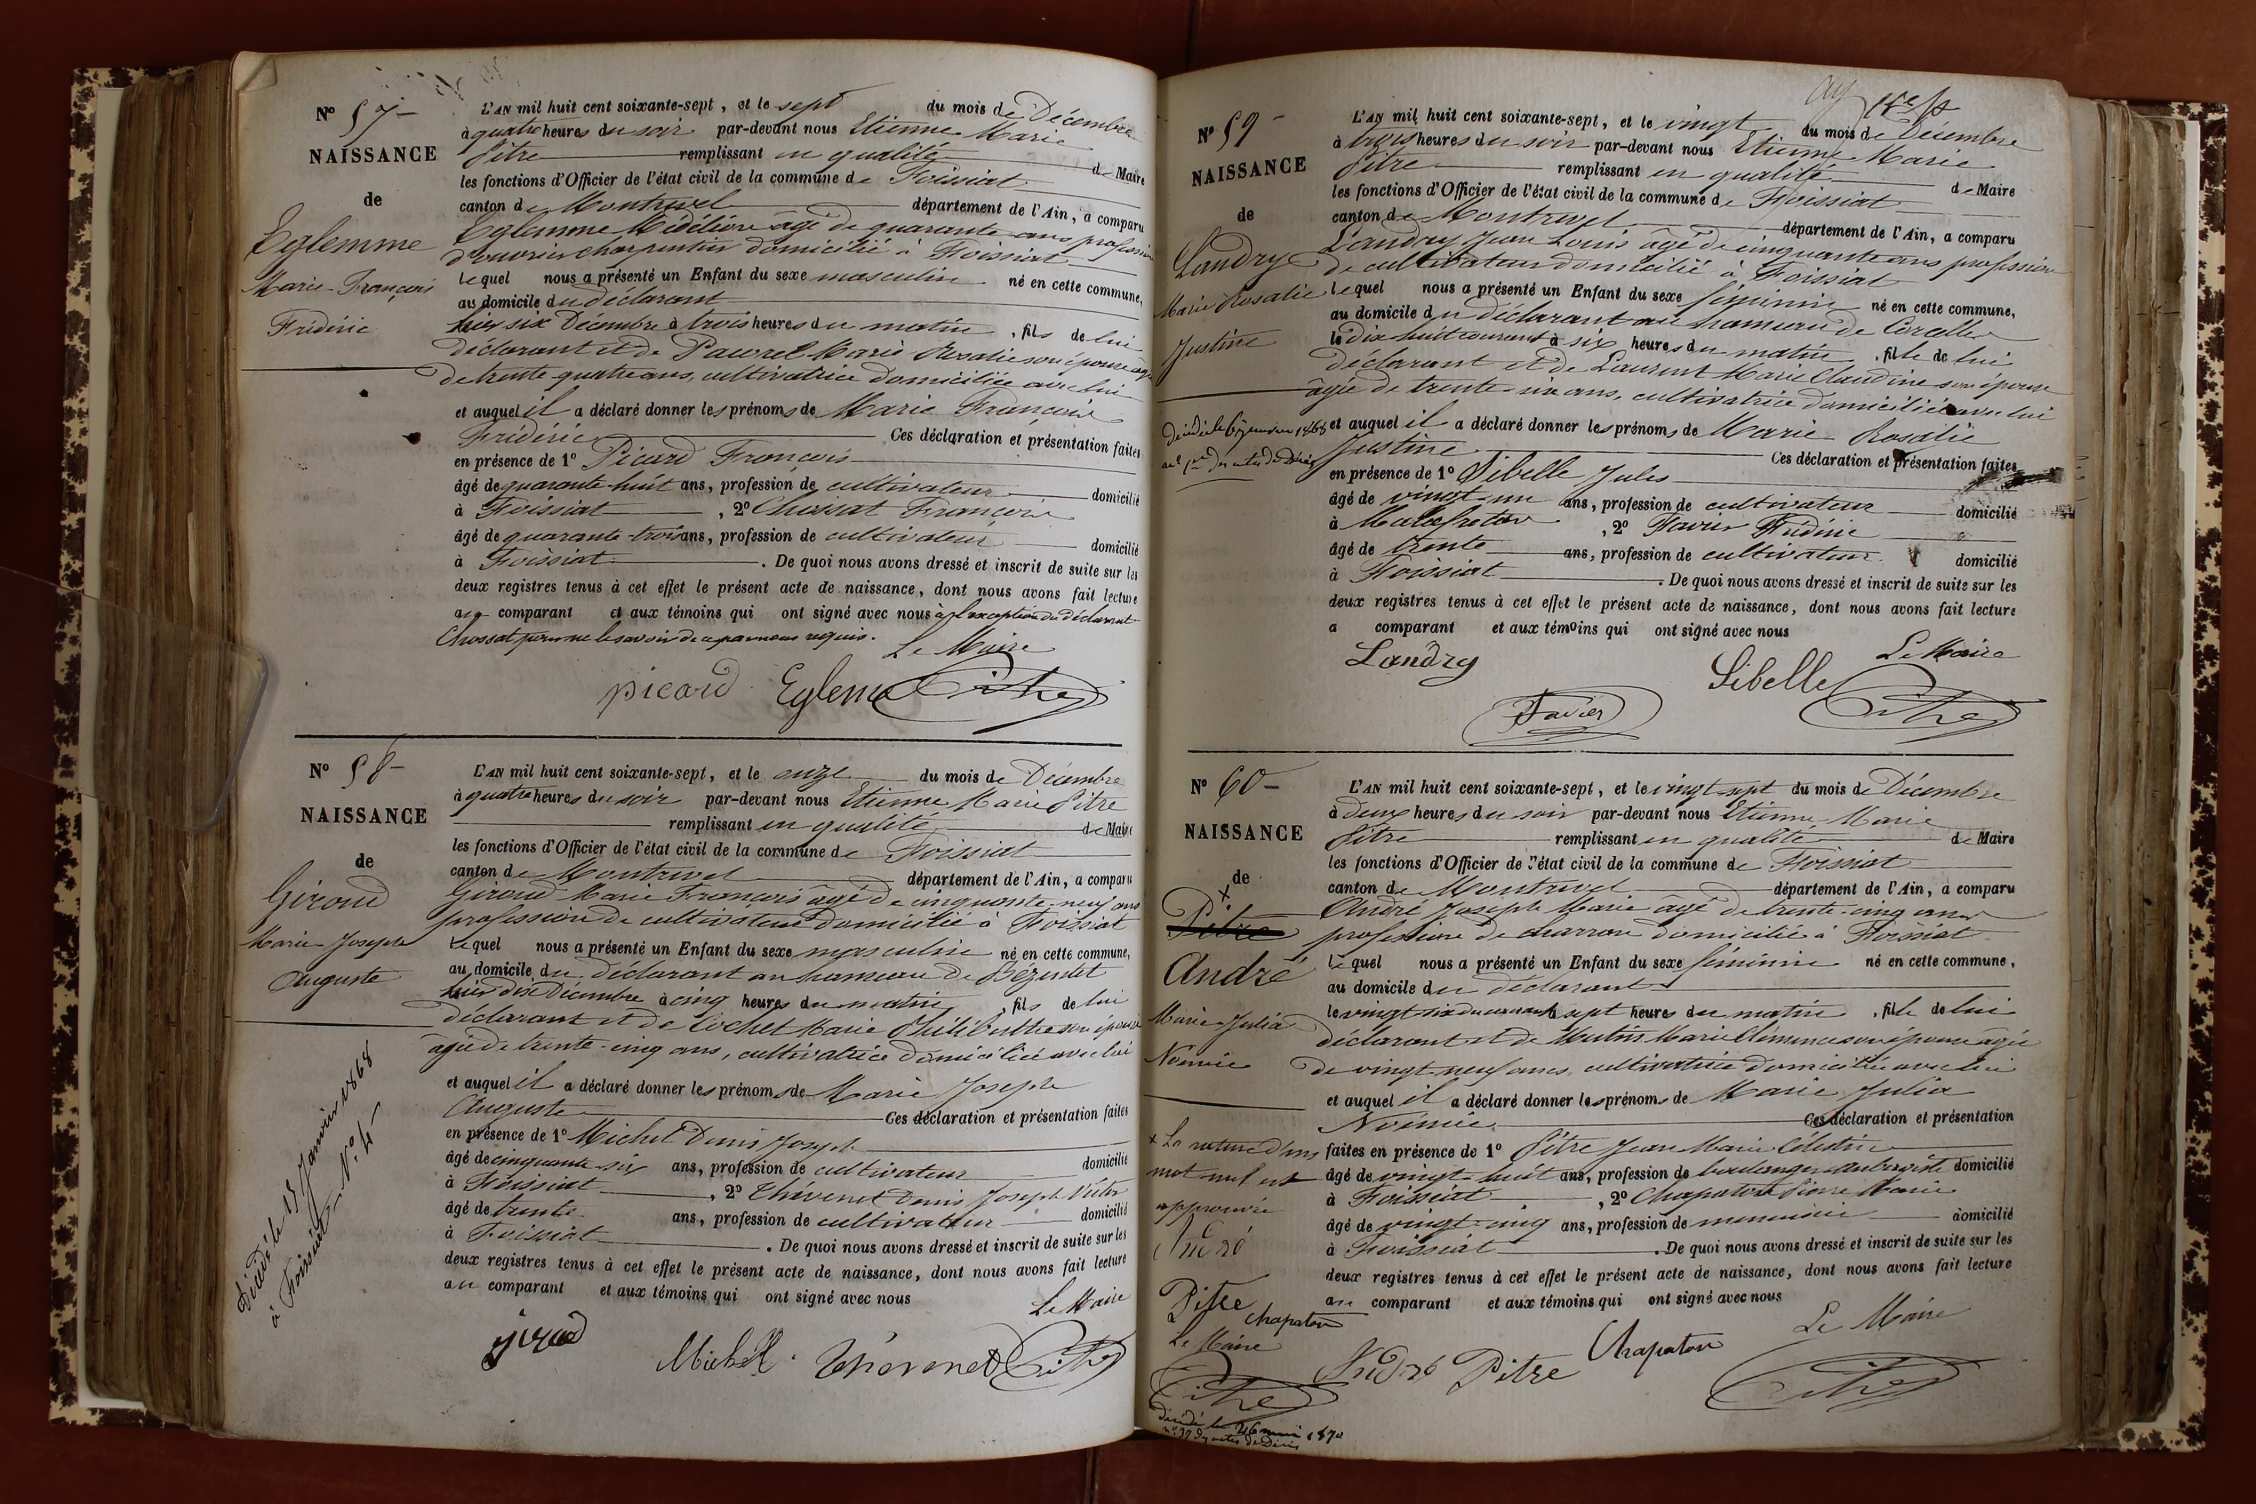 N° 57-
NAISSANCE
de
Eglemme
Marie François
Frédéric
L'AN mil huit cent soixante-sept, et le sept du mois de Décembre
à quatre heures du soir par-devant nous Etienne Marie
Pitre remplissant en qualité de Maire
les fonctions d'Officier de l'état civil de la commune de Foissiat
canton de Montrevel département de l'Ain, a comparu
Eglemme âgé de quarante ans profession
d'ouvrier charpentier domicilié à Foissiat
Lequel nous a présenté un Enfant du sexe masculin né en cette commune,
au domicile du déclarant
hier six Décembre à trois heures du matin, fils de lui
déclarant et de Marie Rosalie son épouse âgée
de trente quatre ans, cultivatrice domiciliée avec lui
et auquel il a déclaré donner les prénoms de Marie François
Frédéric Ces déclaration et présentation faites
en présence de 1° Picard François
âgé de quarante-huit ans, profession de cultivateur domicilié
à Foissiat, 2° Chossat François
âgé de quarante-trois ans, profession de cultivateur domicilié
à Foissiat. De quoi nous avons dressé et inscrit de suite sur les
deux registres tenus à cet effet le présent acte de naissance, dont nous avons fait lecture
au comparant et aux témoins qui ont signé avec nous à l'exception du déclarant
Chossat pour ne le savoir de ce par nous requis.
Le Maire
picard Eglem Pitre
N° 58-
NAISSANCE
de
Giroud
Marie Joseph
Auguste
Décédé le 15 Janvier 1868
à Foissiat N° 4-
L'AN mil huit cent soixante-sept, et le onze du mois de Décembre
à quatre heures du soir par-devant nous Etienne Marie Pitre
remplissant en qualité de Maire
les fonctions d'Officier de l'état civil de la commune de Foissiat
canton de Montrevel département de l'Ain, a comparu
Giroud Marie François âgé de cinquante-neuf ans
profession de cultivateur domicilié à Foissiat
Lequel nous a présenté un Enfant du sexe masculin né en cette commune,
au domicile du déclarant au hameau de
hier dix Décembre à cinq heures du matin, fils de lui
déclarant et de Cochet Marie Philiberthe son épouse
âgée de trente-cinq ans, cultivatrice domiciliée avec lui
et auquel il a déclaré donner les prénoms de Marie Joseph
Auguste Ces déclaration et présentation faites
en présence de 1° Michel Denis Joseph
âgé de cinquante-six ans, profession de cultivateur domicilié
à Foissiat, 2° Thévenet Denis Joseph Victor
âgé de trente ans, profession de cultivateur domicilié
à Foissiat. De quoi nous avons dressé et inscrit de suite sur les
deux registres tenus à cet effet le présent acte de naissance, dont nous avons fait lecture
au comparant et aux témoins qui ont signé avec nous
Le Maire
giroud Michel Thévenet Pitre
N° 59-
NAISSANCE
de
Landry
Marie Rosalie
Justine
Décédée le 6 janvier 1868
L'AN mil huit cent soixante-sept, et le vingt du mois de Décembre
à trois heures du soir par-devant nous Etienne Marie
Pitre remplissant en qualité de Maire
les fonctions d'Officier de l'état civil de la commune de Foissiat
canton de Montrevel département de l'Ain, a comparu
Landry Jean Louis âgé de cinquante ans profession
de cultivateur domicilié à Foissiat
Lequel nous a présenté un Enfant du sexe féminin né en cette commune,
au domicile du déclarant au hameau de
le dix huit courant à six heures du matin, fille de lui
déclarant et de Laurent Marie Claudine son épouse
âgée de trente-six ans, cultivatrice domiciliée avec lui
et auquel il a déclaré donner les prénoms de Marie Rosalie
Justine Ces déclaration et présentation faites
en présence de 1° Sibelle Jules
âgé de vingt-un ans, profession de cultivateur domicilié
à Malafretaz, 2° Favier Frédéric
âgé de trente ans, profession de cultivateur domicilié
à Foissiat. De quoi nous avons dressé et inscrit de suite sur les
deux registres tenus à cet effet le présent acte de naissance, dont nous avons fait lecture
a comparant et aux témoins qui ont signé avec nous
Le Maire
Landry Sibelle Pitre
Favier
N° 60-
NAISSANCE
de
x
Pitre
André
Marie Julia
Noémie
x La rature d'un
mot nul est
approuvée
André
Pitre
Chapaton
Le Maire
Pitre
L'AN mil huit cent soixante-sept, et le vingt-sept du mois de Décembre
à deux heures du soir par-devant nous Etienne Marie
Pitre remplissant en qualité de Maire
les fonctions d'Officier de l'état civil de la commune de Foissiat
canton de Montrevel département de l'Ain, a comparu
André Joseph Marie âgé de trente-cinq ans
profession de charron domicilié à Foissiat
Lequel nous a présenté un Enfant du sexe féminin né en cette commune,
au domicile du déclarant
le vingt-six du courant à sept heures du matin, fille de lui
déclarant et de Marie Clémence son épouse âgée
de vingt-neuf ans, cultivatrice domiciliée avec lui
et auquel il a déclaré donner les prénoms de Marie Julia
Noémie Ces déclaration et présentation
faites en présence de 1° Pitre Jean Marie Célestin
âgé de vingt-huit ans, profession de boulanger aubergiste domicilié
à Foissiat, 2° Chapaton Pierre Marie
âgé de vingt-cinq ans, profession de menuisier domicilié
à Foissiat. De quoi nous avons dressé et inscrit de suite sur les
deux registres tenus à cet effet le présent acte de naissance, dont nous avons fait lecture
au comparant et aux témoins qui ont signé avec nous
Le Maire
André Pitre Chapaton Pitre